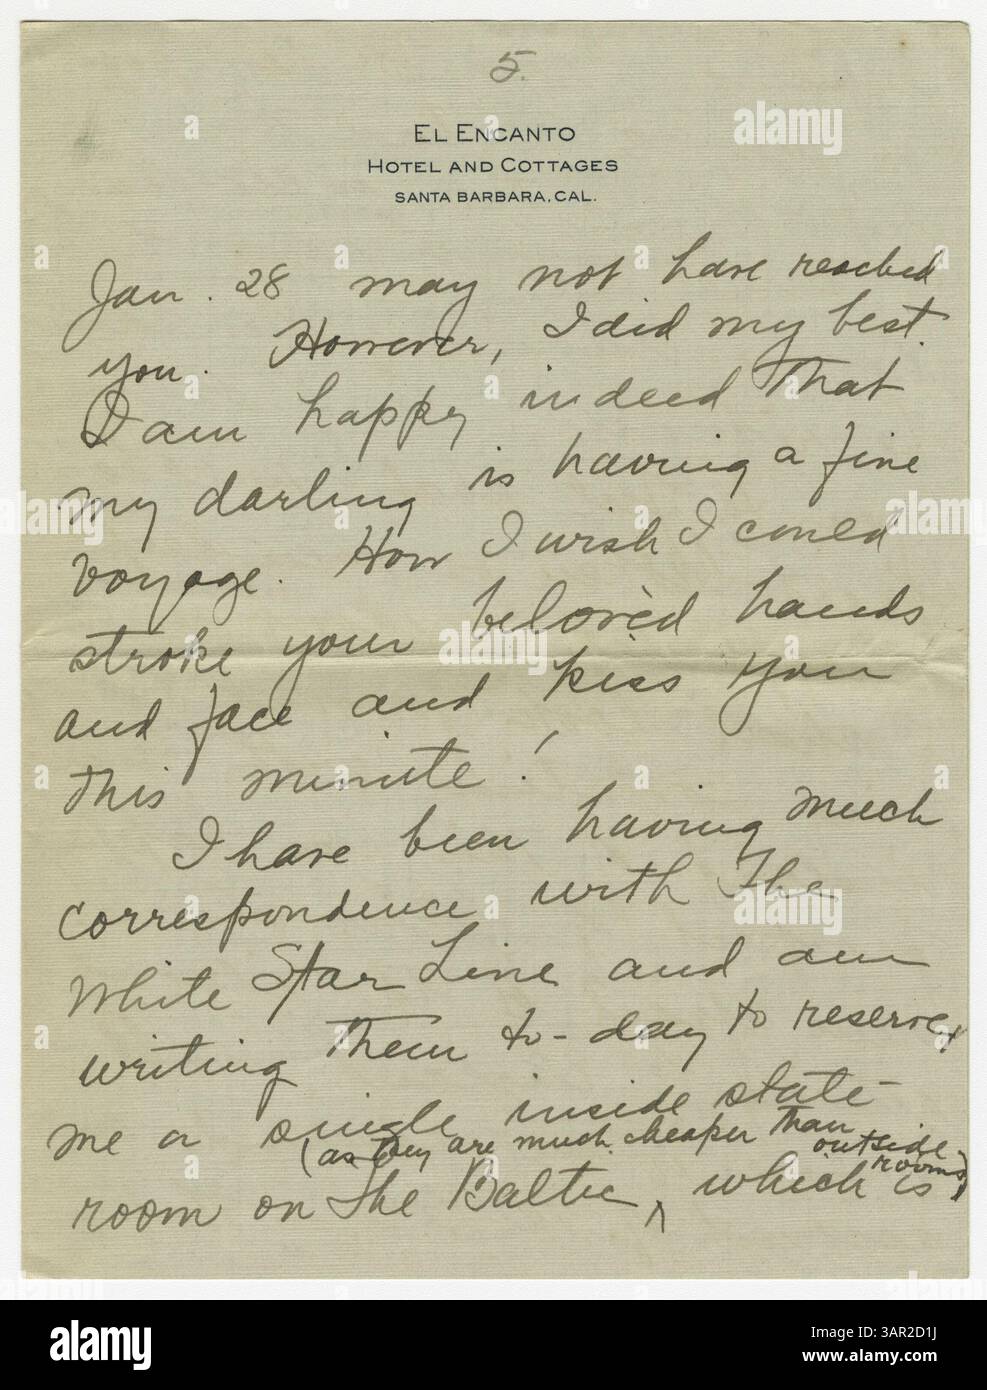 5.
EL ENCANTO
HOTEL AND COTTAGES
SANTA BARBARA, CAL.
Jan. 28 may not have reached
you. However, I did my best.
I am happy indeed that
my darling is having a fine
voyage. How I wish I could
stroke your beloved hands
and face and kiss you
this minute!
I have been having much
correspondence with The
White Star Line and am
writing them to-day to reserve
me a single inside state-
(as they are much cheaper than outside rooms)
room on the Baltic ^, which is
alamy
Image ID: 3AR2D1J
www.alamy.com